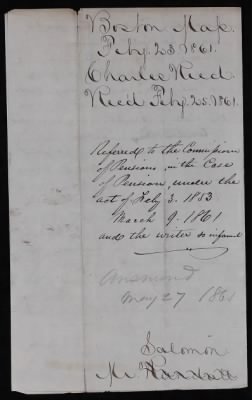 Boston Mass.
Feby. 23. 1861.
Charlie Reed.
Recd Feby. 25. 1861.
Referred to the Commissioner
of Pensions, in the Case
of Pension, under the
act of Feby 3. 1853
March 9. 1861
and the writer so informed
Answered
May 27 1861
Salomon
Mr